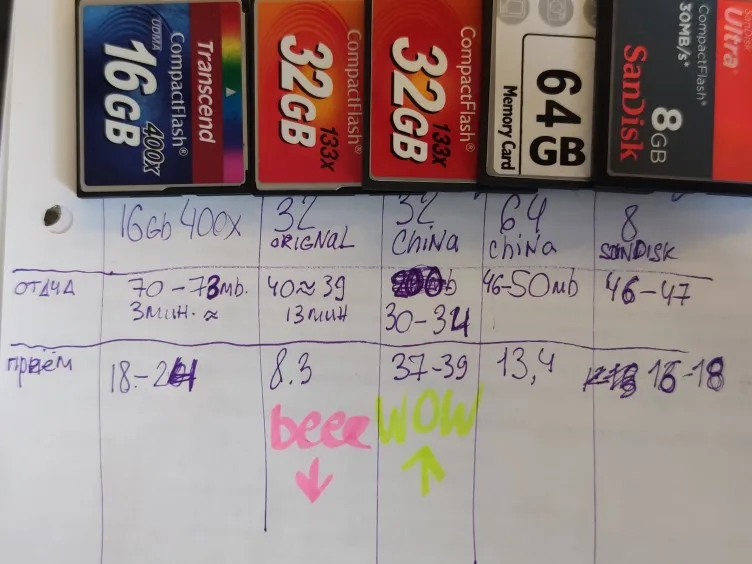 Transcend
CompactFlash®
UDMA
400x
16GB
CompactFlash®
133x
32GB
CompactFlash®
133x
32GB
64
GB
Memory Card
SanDisk
Ultra
CompactFlash®
30MB/s*
8GB
SanDisk
16Gb 400X
32
ORIGNAL
32
CHiNA
64
CHiNA
8
SANDISK
ОТДЧА
70-73mb.
3 мин. ≈
40≈39
13мин
30-34
46-50mb
46-47
приём
18.-24
8.3
37-39
13,4
16-18
beee
WOW